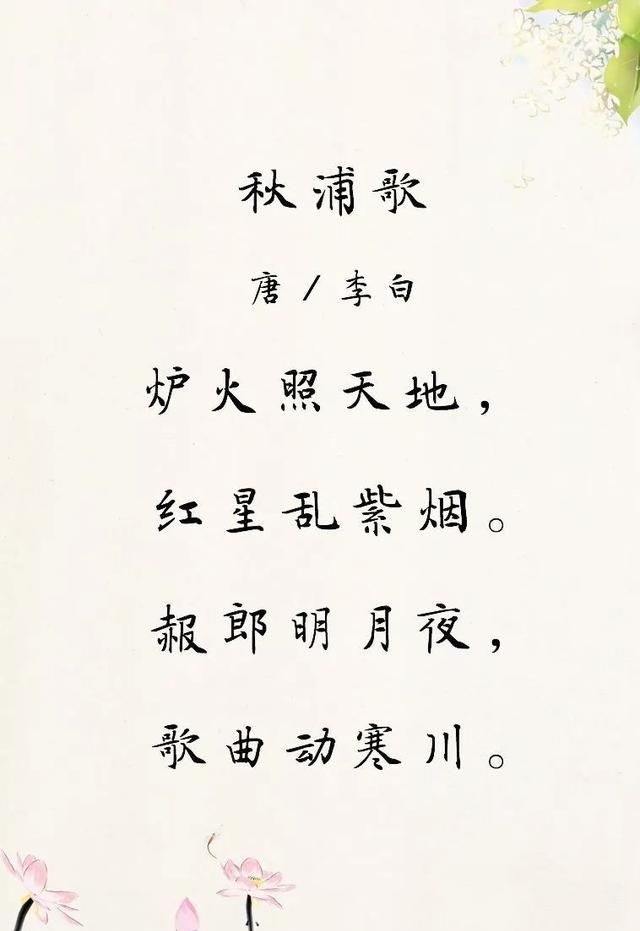 秋浦歌
唐/李白
炉火照天地，
红星乱紫烟。
赧郎明月夜，
歌曲动寒川。